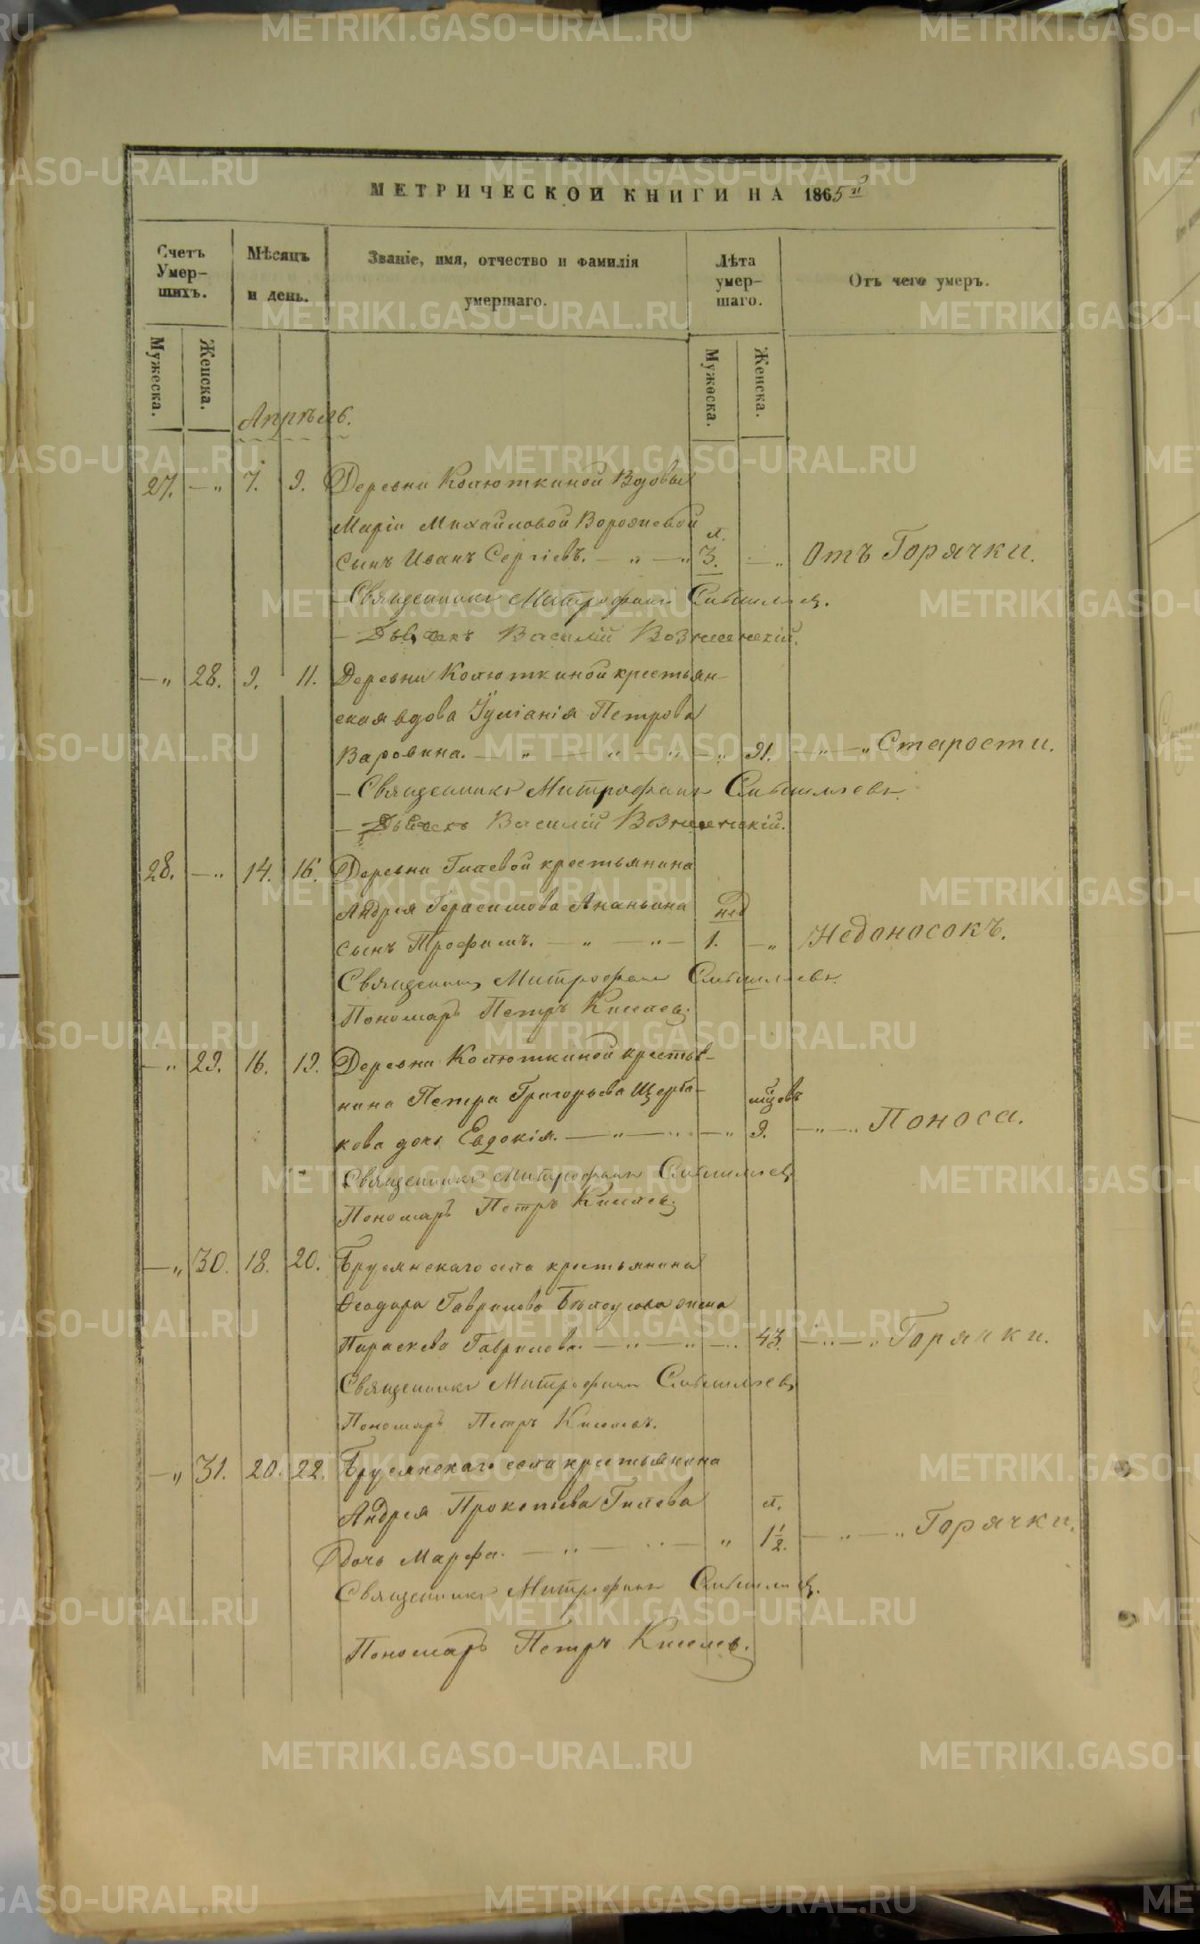 МЕТРИЧЕСКОЙ КНИГИ НА 1865й
Счетъ Умер-шихъ.
Мѣсяцъ и день.
Званіе, имя, отчество и фамилія умершаго.
Лѣта умер-шаго.
Отъ чего умеръ.
Мужеска.
Женска.
Мужеска.
Женска.
Апрѣль.
27. — „ 7. 9. Деревни Колюткиной Вдовы
Маріи Михайловой
Сынъ Иванъ Сергіевъ. — „ — „ л. 3. — „ Отъ Горячки.
Священникъ Митрофанъ
Василій Вознесенскій.
— „ 28. 9. 11. Деревни Колюткиной крестьян-
ская вдова Іуліанія Петрова
Варовина. — „ — „ — „ — „ 91. — „ — „ Старости.
— Священникъ Митрофанъ
Василій Вознесенскій.
28. — „ 14. 16. Деревни Гилевой крестьянина
Андрея Герасимова Ананьина нед
сынъ Трофимъ. — „ — „ — 1. — „ Недоносокъ.
Священникъ Митрофанъ
Пономарь Петръ Киселев.
— „ 29. 16. 19. Деревни Колюткиной крестья-
нина Петра Григорьева Щерба- мѣсяцовъ
кова дочь Евдокія. — „ — „ — „ 9. — „ — „ Поноса.
Священникъ Митрофанъ
Пономарь Петръ Киселев.
— „ 30. 18. 20. Брусянскаго села крестьянина
Ѳеодора Гаврилова жена
Параскева Гаврилова. — „ — „ — „ 43. — „ — „ Горячки.
Священникъ Митрофанъ
Пономарь Петръ Киселевъ.
— „ 31. 20. 22. Брусянскаго села крестьянина
Андрея Прокопьева Гилева л.
Дочь Марфа. — „ — „ — „ 1 1/2. — „ — „ Горячки.
Священникъ Митрофанъ
Пономарь Петръ Киселев.
METRIKI.GASO-URAL.RU